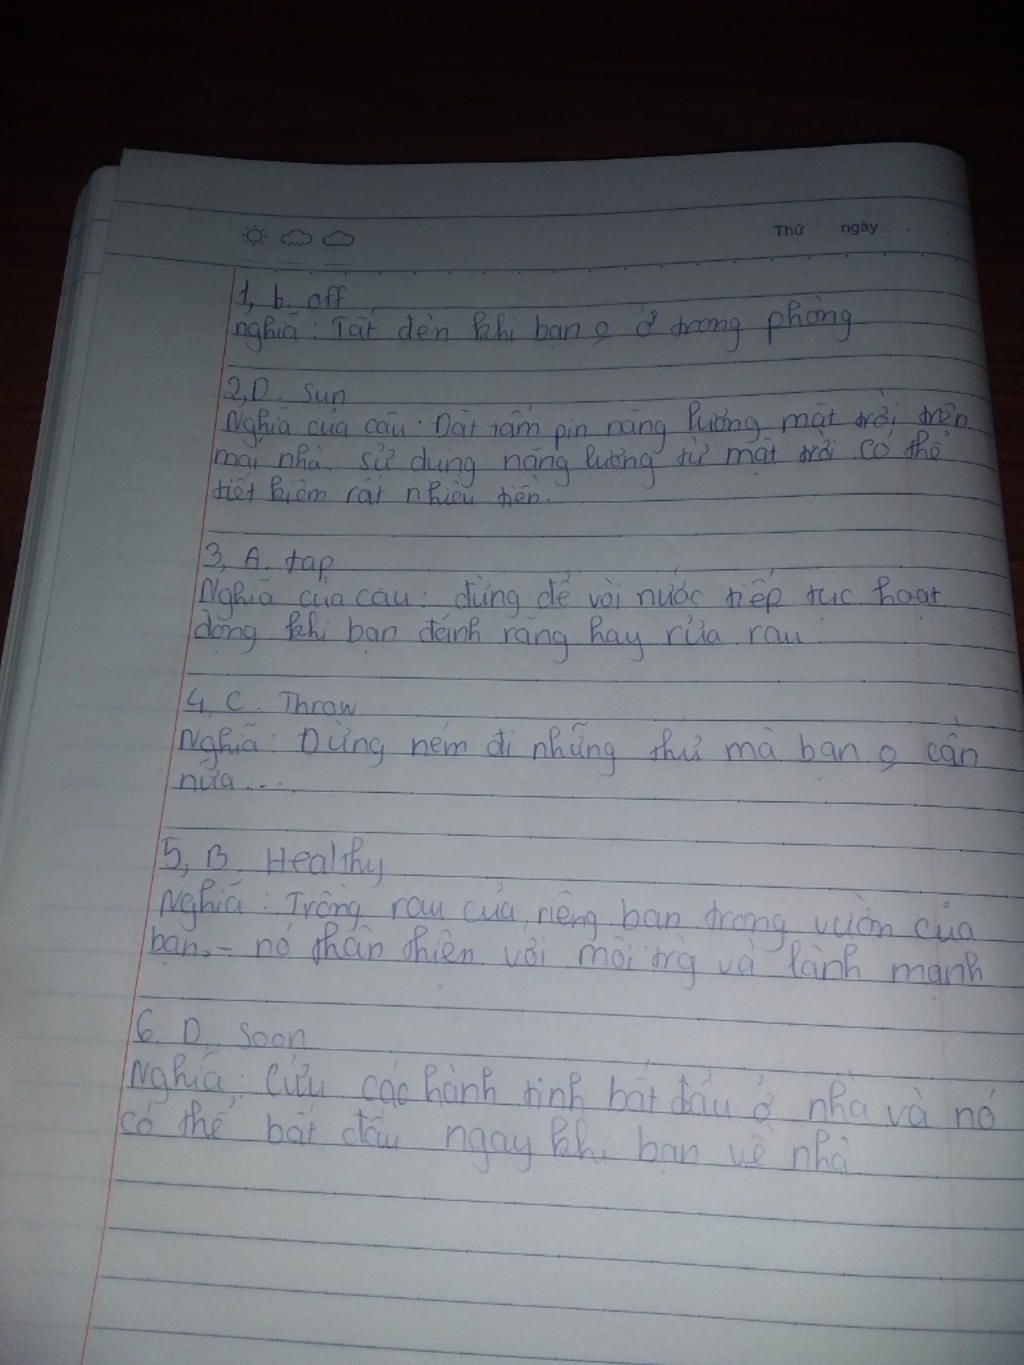 Thứ ngày
1, b. off
nghĩa: Tắt đèn khi bạn ko ở trong phòng
2, D. Sun
Nghĩa của câu: Đặt tấm pin năng lượng mặt trời trên
mái nhà. sử dụng năng lượng từ mặt trời có thể
tiết kiệm rất nhiều tiền.
3, A. tap
Nghĩa của câu: đừng để vòi nước tiếp tục hoạt
động khi bạn đánh răng hay rửa rau
4, C. Throw
Nghĩa: Đừng ném đi những thứ mà bạn ko cần
nữa...
5, B. Healthy
Nghĩa: Trồng rau của riêng bạn trong vườn của
bạn. - nó thân thiện với môi trg và lành mạnh
6. D. Soon
Nghĩa: Cứu các hành tinh bắt đầu ở nhà và nó
có thể bắt đầu ngay khi bạn về nhà